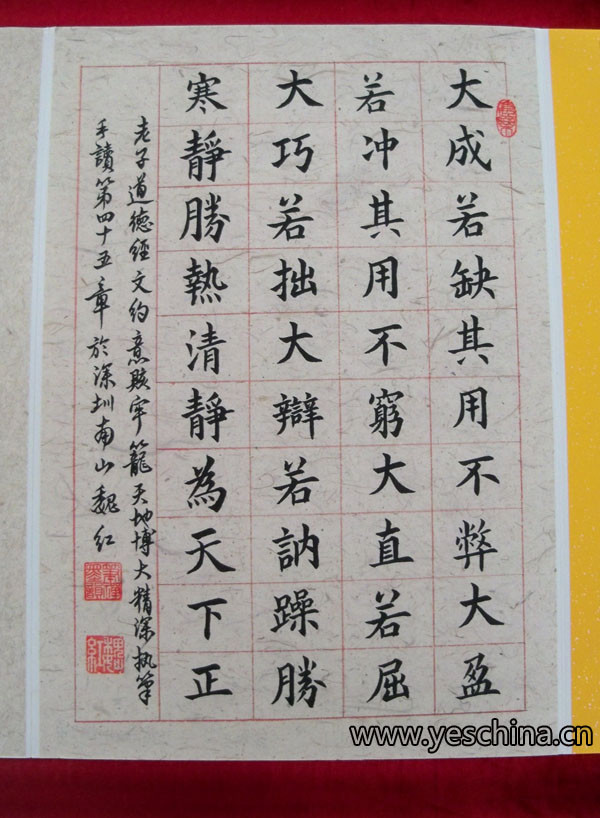 大成若缺其用不弊大盈
若冲其用不窮大直若屈
大巧若拙大辯若訥躁勝
寒靜勝熱清靜為天下正
老子道德經文約意賅牢籠天地博大精深执笔
手讀第四十五章於深圳南山魏红
www.yeschina.cn